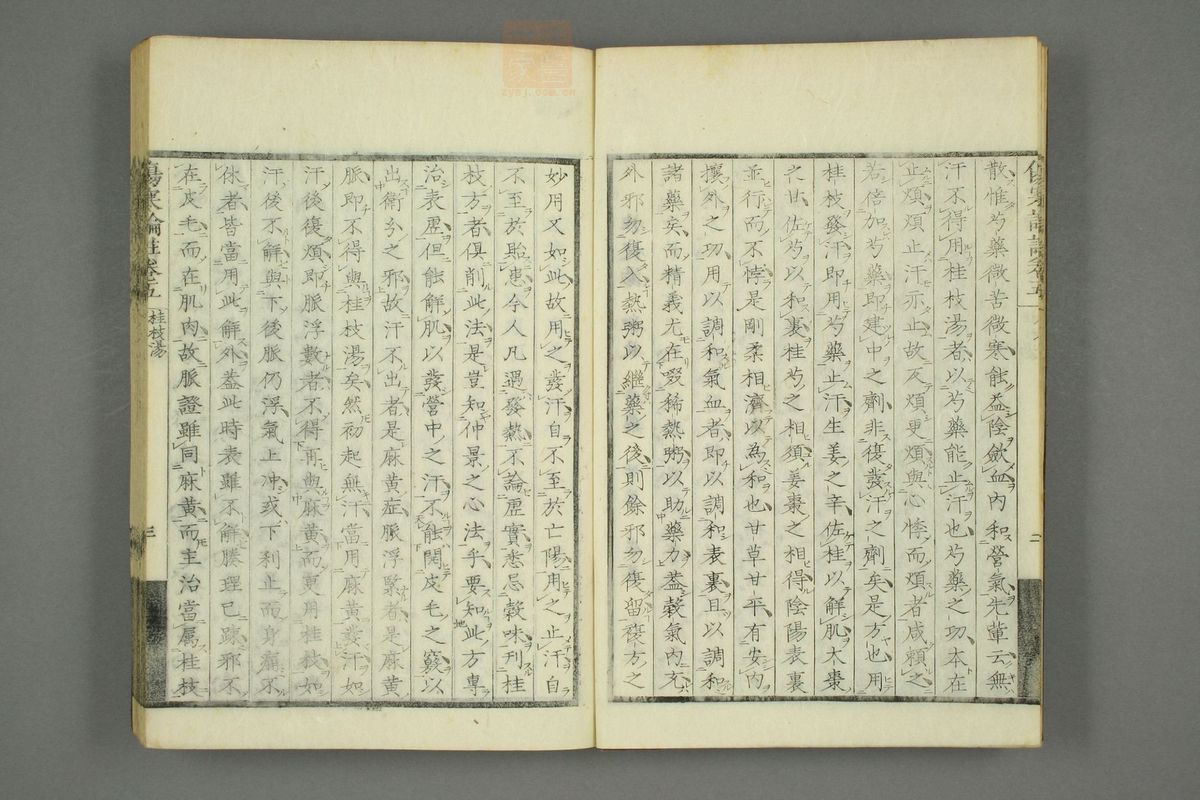 散惟芍藥微苦微寒能益陰歛血內和營氣先輩云無
汗不得用桂枝湯者以芍藥能止汗也芍藥之功本在
止煩煩止汗亦止故反煩更煩與心悸而煩者咸賴之
若倍加芍藥即建中之劑非復發汗之劑矣是方也用
桂枝發汗即用芍藥止汗生姜之辛佐桂以解肌大棗
之甘佐芍以和裏桂芍之相須姜棗之相得陰陽表裏
並行而不悖是剛柔相濟以為和也甘草甘平有安內
攘外之功用以調和氣血者即以調和表裏且以調和
諸藥矣而精義尤在啜稀熱粥以助藥力葢穀氣內充
外邪勿復入熱粥以繼藥之後則餘邪勿復留複方之
傷寒論註卷五
二
妙用又如此故用之發汗自不至於亡陽用之止汗自
不至於貽患今人凡遇發熱不論虛實悉忌穀味刊桂
枝方者俱削此法是豈知仲景之心法乎要知此方專
治表虛但能解肌以發營中之汗不能開皮毛之竅以
出衛分之邪故汗不出者是麻黃症脈浮緊者是麻黃
脈即不得與桂枝湯矣然初起無汗當用麻黃發汗如
汗後復煩即脈浮數者不得再與麻黃而更用桂枝如
汗後不解與下後脈仍浮氣上冲或下利止而身痛不
休者皆當用此解外葢此時表雖不解腠理已踈邪不
在皮毛而在肌肉故脈證雖同麻黃而主治當属桂枝
傷寒論註卷五
桂枝湯
三
zysj.com.cn